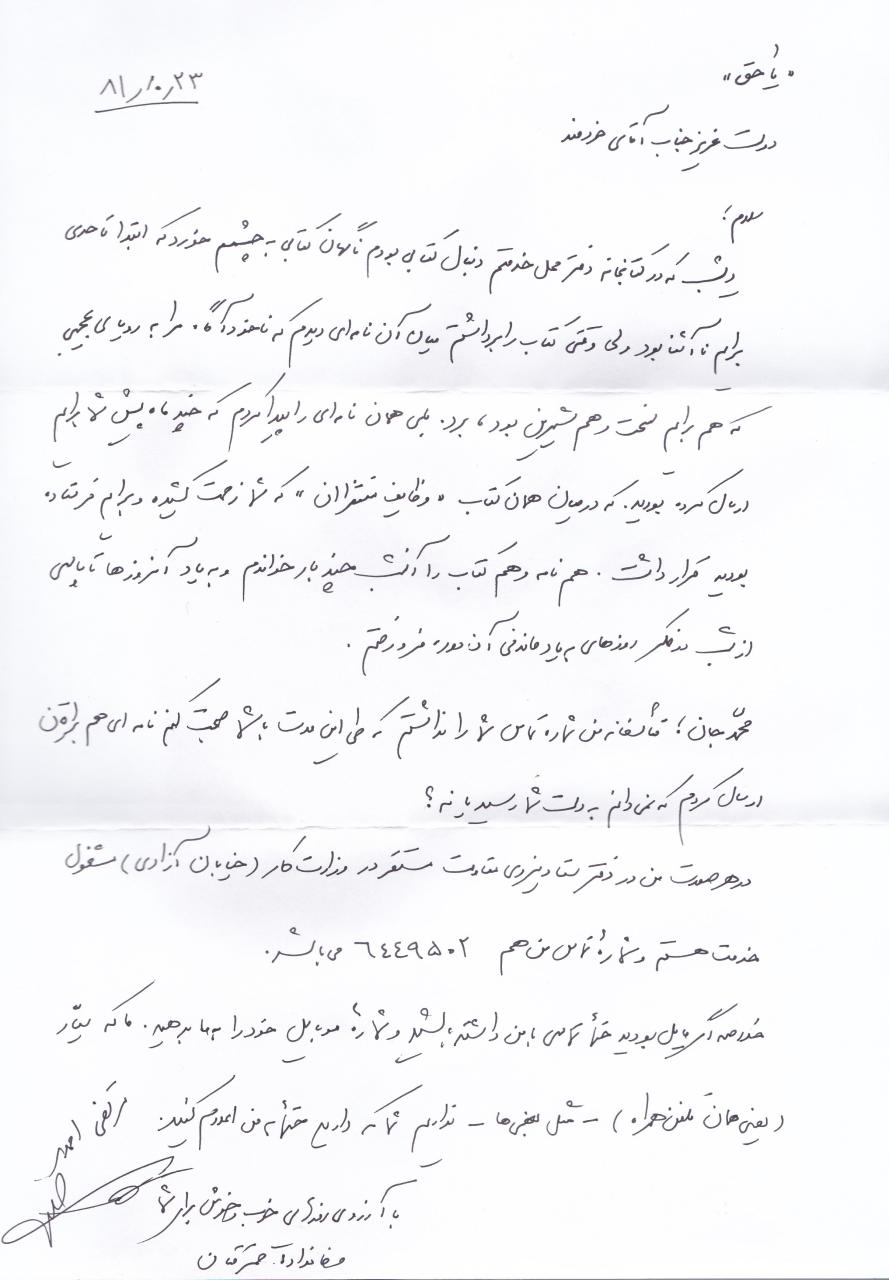 «یا حق»
۸۱/۱۰/۲۳
دوست عزیز جناب آقای خردمند
سلام؛
دیشب که در کتابخانه دفتر محل خدمتم دنبال کتابی بودم ناگهان کتابی به چشمم خورد که ابتدا تا حدی
برایم ناآشنا بود ولی وقتی کتاب را برداشتم میان آن نامه‌ای دیدم که ناخودآگاه مرا به رویاهای عجیبی
که هم برایم سخت و هم شیرین بود، برد. بلی همان نامه‌ای را پیدا کردم که چند ماه پیش شما برایم
ارسال کرده بودید. که در میان همان کتاب «وظایف منتظران» که شما زحمت کشیده و برایم فرستاده
بودید قرار داشت. هم نامه و هم کتاب را آنشب چند بار خواندم و به یاد آنروزها تا پاسی
از شب در فکر روزهای به یاد ماندنی آن دوره فرو رفتم.
محمّد جان؛ متأسفانه من شماره تماس شما را نداشتم که طی این مدت با شما صحبت کنم نامه‌ای هم برایتان
ارسال کردم که نمی‌دانم به دست شما رسید یا نه؟
در هر صورت من در دفتر ستاد نیروی مقاومت مستقر در وزارت کار (خیابان آزادی) مشغول
خدمت هستم و شمارهٔ تماس من هم ۶۴۴۹۵۰۲ می‌باشد.
خلاصه اگر مایل بودید حتماً تماسی با من داشته باشید و شمارهٔ موبایل خود را به ما بدهید. ما که سیّار
(یعنی همان تلفن همراه) – مثل بعضی‌ها – نداریم شما که دارید حتماً به من اعلام کنید.
با آرزوی روزهای خوب و خوش برای شما
و خانواده محترمتان
مرتضی احمد